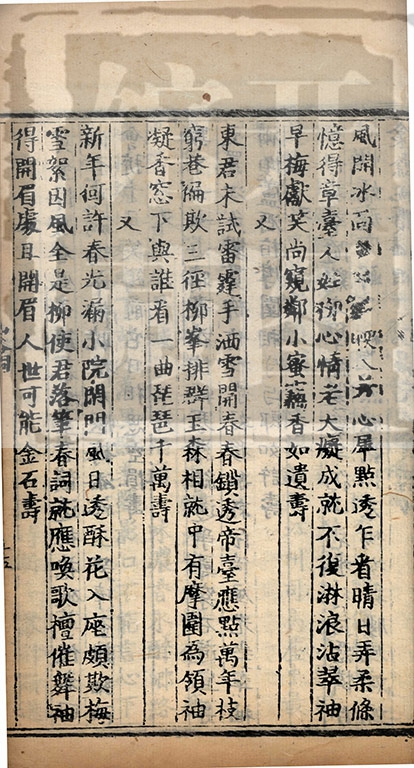 風開冰面暖入芳心犀點透乍看晴日弄柔條
憶得章臺人姓柳心情老大癡成就不復淋浪沾翠袖
早梅獻笑尚窺鄰小蜜竊香如遺壽
又
東君未試雷霆手洒雪開春春鎖透帝臺應點萬年枝
窮巷偏欺三徑柳峯排群玉森相就中有摩圍為領袖
凝香窓下與誰看一曲琵琶千萬壽
又
新年何許春光漏小院閉門風日透酥花入座頗欺梅
雪絮因風全是柳使君落筆春詞就應喚歌檀催舞袖
得開眉處且開眉人世可能金石壽